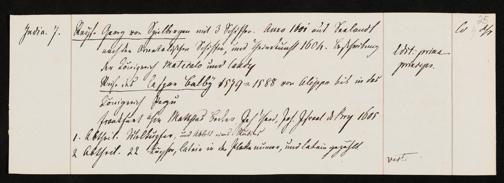 India. 7. Reise Georg von Spilbergen mit 3 Schiffen. Anno 1601 aus Seelandt
nach den Orientalischen Schiffen, und Wiederkunfft 1604. Beschreibung
der Königreich Matecalo und Candy
Reise des Caspar Balby 1579–1588 von Aleppo bis in das
Königreich Pegu
Frankfurt Matthias Becker Joh Theod, Joh Israel de Bry 1605
1. Abtheil. Titelkupfer.
2 Abtheil. 22 Kupfer, latein in der Plattennummer, und latein gezählt
Edit: prima
princeps.
vert.